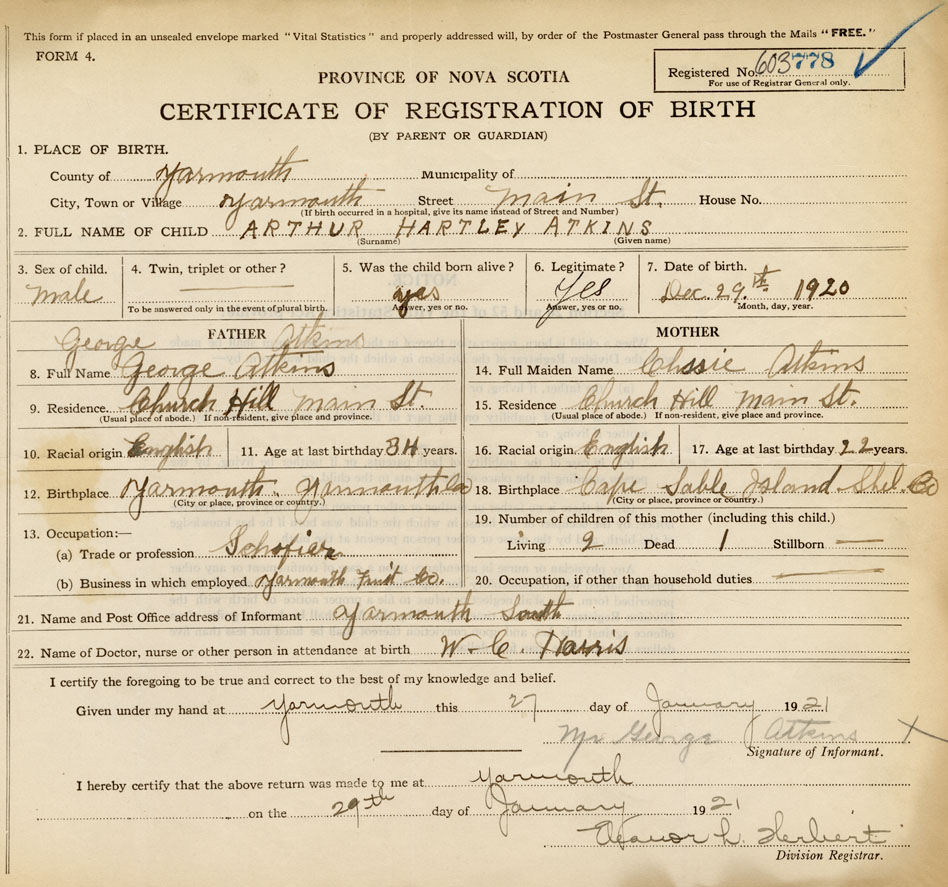 This form if placed in an unsealed envelope marked "Vital Statistics" and properly addressed will, by order of the Postmaster General pass through the Mails "FREE."
FORM 4.
Registered No. 603778
For use of Registrar General only.
PROVINCE OF NOVA SCOTIA
CERTIFICATE OF REGISTRATION OF BIRTH
(BY PARENT OR GUARDIAN)
1. PLACE OF BIRTH.
County of Yarmouth Municipality of
City, Town or Village Yarmouth Street Main St. House No.
(If birth occurred in a hospital, give its name instead of Street and Number)
2. FULL NAME OF CHILD ARTHUR HARTLEY ATKINS
(Surname) (Given name)
3. Sex of child. 4. Twin, triplet or other? 5. Was the child born alive? 6. Legitimate? 7. Date of birth.
Male yes Yes Dec. 29th 1920
To be answered only in the event of plural birth. Answer, yes or no. Answer, yes or no. Month, day, year.
FATHER MOTHER
George Atkins
8. Full Name George Atkins 14. Full Maiden Name Atkins
9. Residence. Church Hill Main St. 15. Residence Church Hill Main St.
(Usual place of abode.) If non-resident, give place and province. (Usual place of abode.) If non-resident, give place and province.
10. Racial origin English 11. Age at last birthday 34 years. 16. Racial origin English 17. Age at last birthday 22 years.
12. Birthplace Yarmouth. Yarmouth Co 18. Birthplace Cape Sable Island Shel. Co
(City or place, province or country.) (City or place, province or country.)
13. Occupation:— 19. Number of children of this mother (including this child.)
(a) Trade or profession Living 2 Dead 1 Stillborn —
(b) Business in which employed Yarmouth Fruit Co. 20. Occupation, if other than household duties
21. Name and Post Office address of Informant Yarmouth South
22. Name of Doctor, nurse or other person in attendance at birth W. C. Harris
I certify the foregoing to be true and correct to the best of my knowledge and belief.
Given under my hand at Yarmouth this 27 day of January 1921
Mr George Atkins X
Signature of Informant.
I hereby certify that the above return was made to me at Yarmouth
on the 29th day of January 1921
Eleanor L. Herbert
Division Registrar.